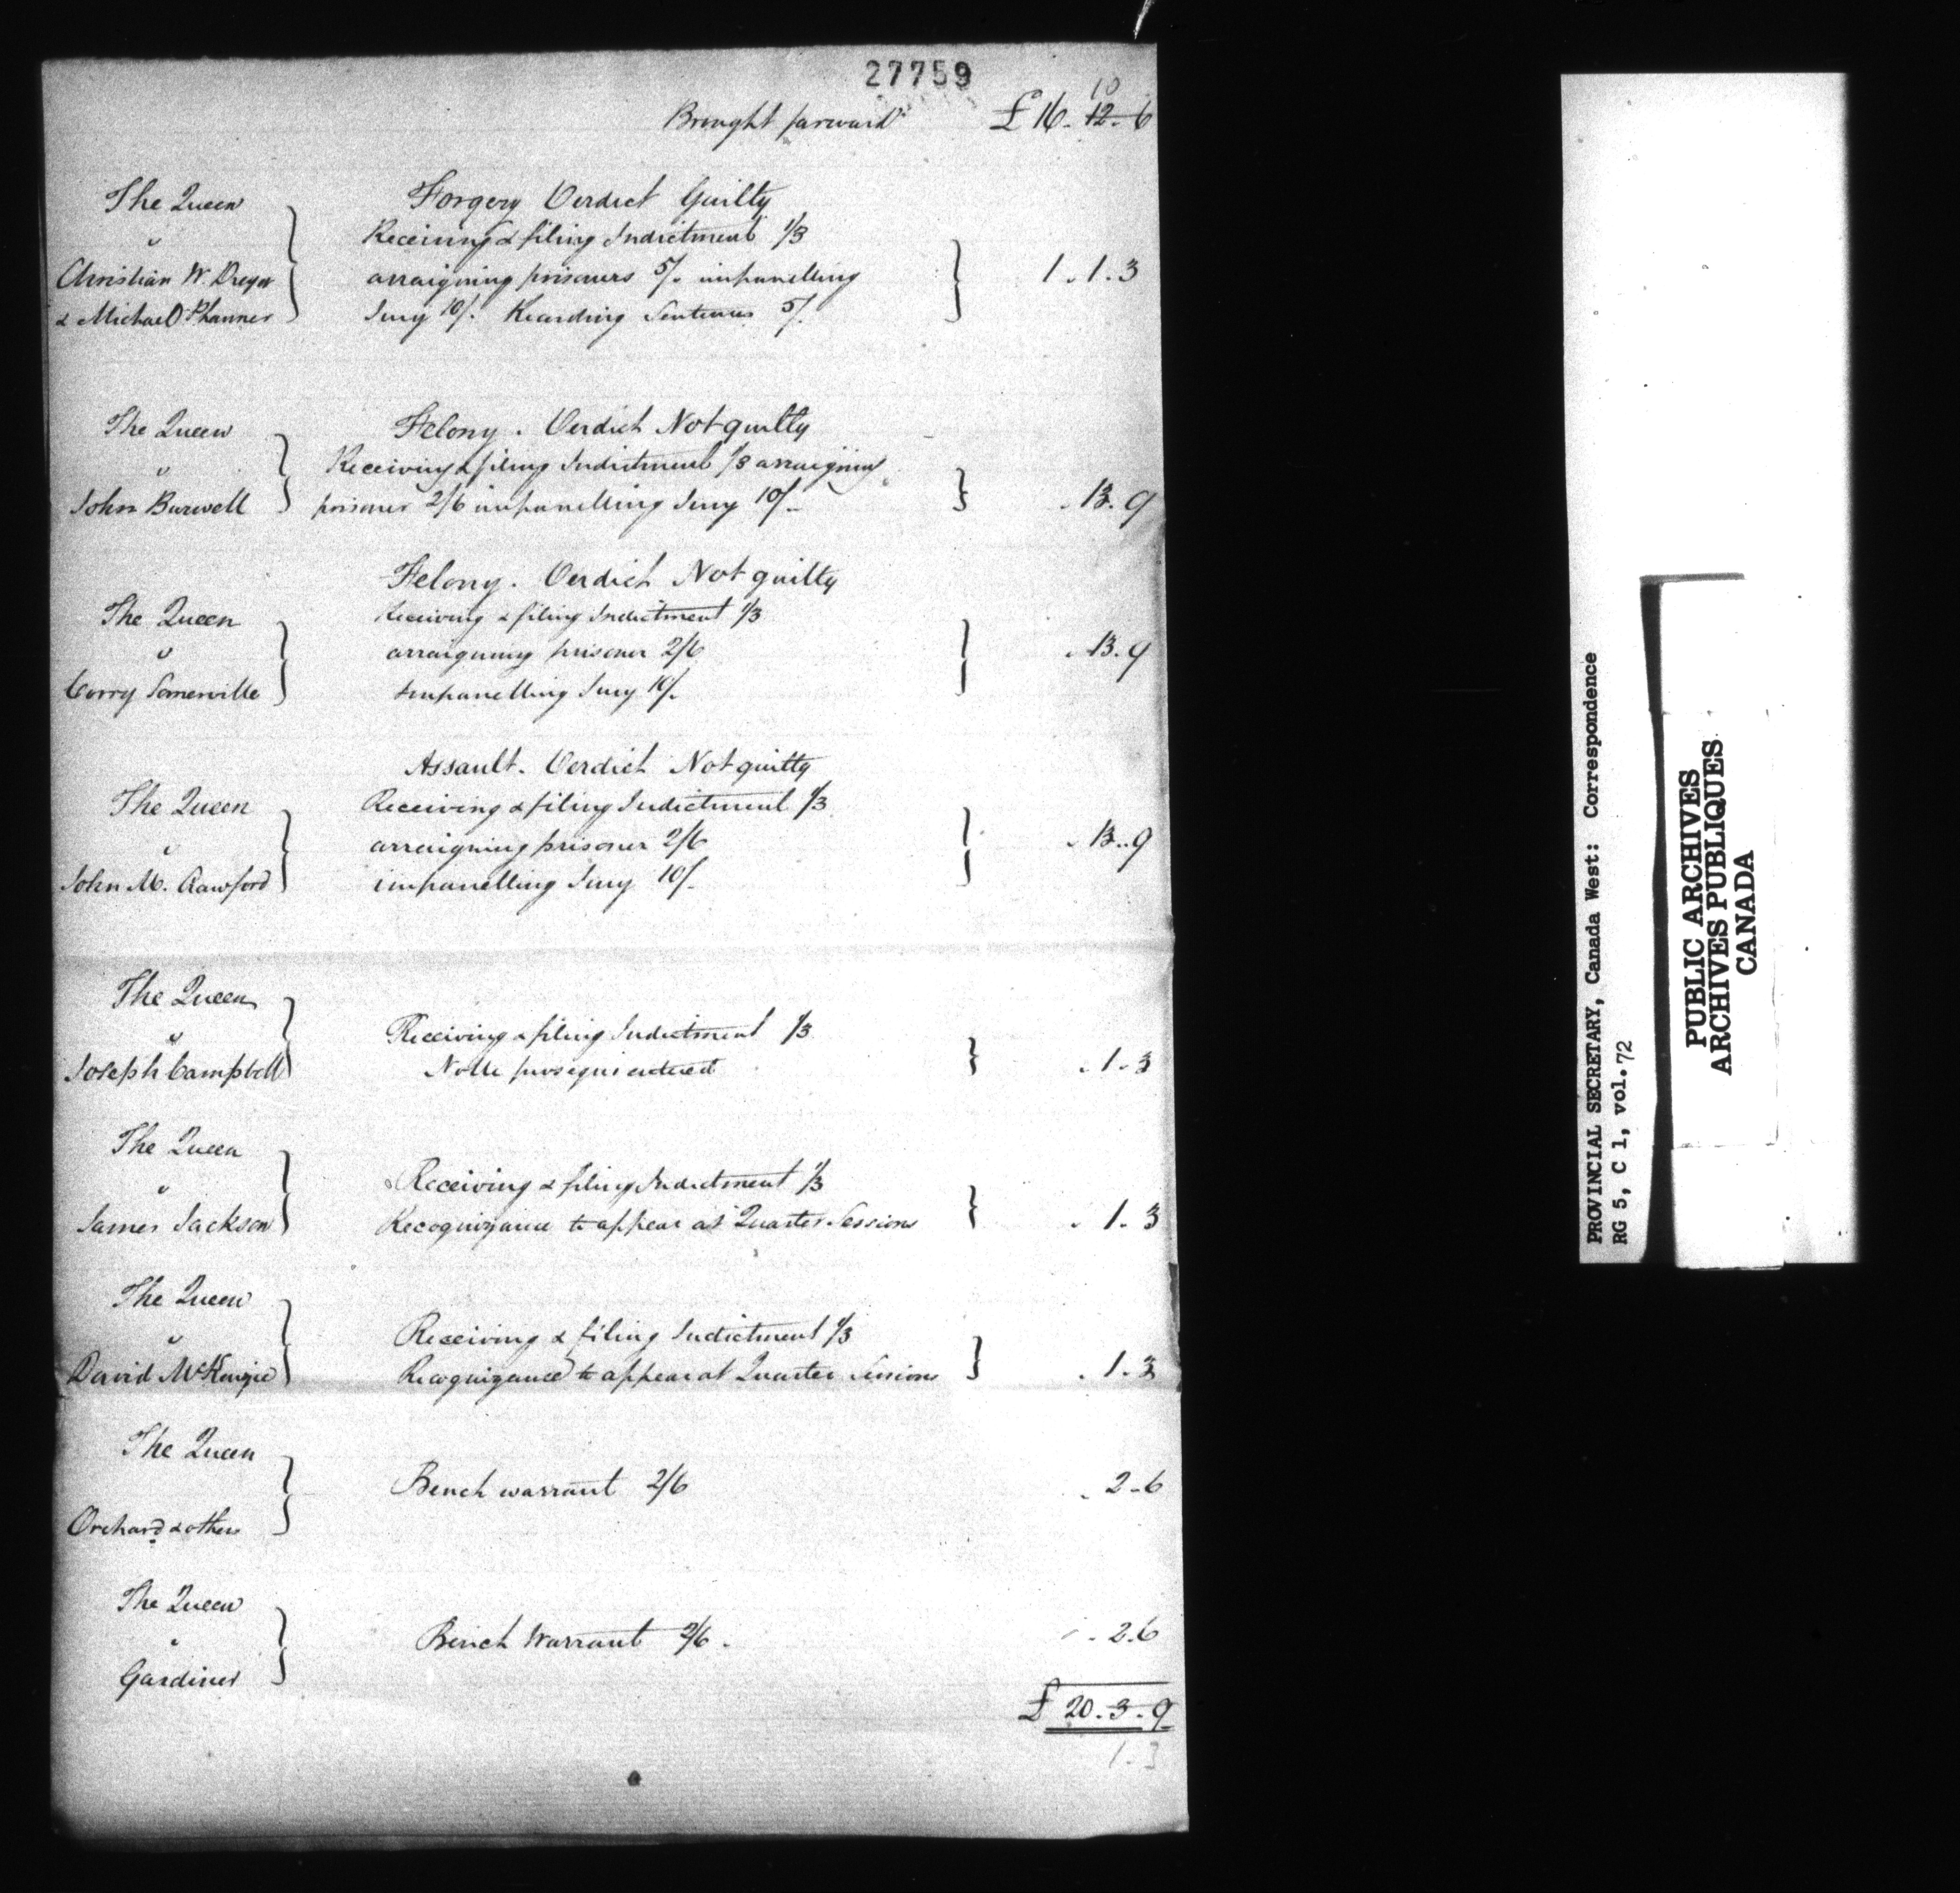 27759
10
Brought forward £ 16. 12. 6
The Queen
Forgery Verdict Guilty
"
Receiving & filing Indictment 1/3
Christian W. Dreyer
arraigning prisoners 5/. impanelling
1. 1. 3
& Michael Phanner
Jury 10/. Recording Sentences 5/.
The Queen
Felony. Verdict Not guilty
"
Receiving & filing Indictment 1/3 arraigning
John Burwell
prisoner 2/6 impanelling Jury 10/-
. 13. 9
Felony. Verdict Not guilty
The Queen
Receiving & filing Indictment 1/3
"
arraigning prisoner 2/6
. 13. 9
Corry Somerville
Impanelling Jury 10/.
Assault. Verdict Not guilty
The Queen
Receiving & filing Indictment 1/3
"
arraigning prisoner 2/6
. 13. 9
John M. Crawford
impanelling Jury 10/-
The Queen
"
Receiving & filing Indictment 1/3
Joseph Campbell
Nolle prosequi entered
. 1. 3
The Queen
"
Receiving & filing Indictment 1/3
James Jackson
Recognizance to appear at Quarter Sessions
. 1. 3
The Queen
"
Receiving & filing Indictment 1/3
David McKenzie
Recognizance to appear at Quarter Sessions
. 1. 3
The Queen
Bench warrant 2/6
. 2-6
Orchard & others
The Queen
"
Bench Warrant 2/6 .
. 2.6
Gardiner
£ 20. 3. 9
1. 3
PROVINCIAL SECRETARY, Canada West: Correspondence
RG 5, C 1, vol.72
PUBLIC ARCHIVES
ARCHIVES PUBLIQUES
CANADA